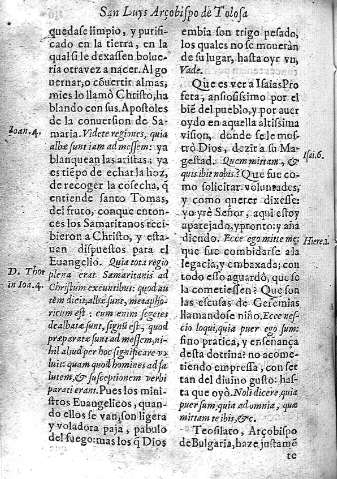 San Luys Arçobispo de Tolosa
quedase limpio, y purifi-
cado en la tierra, en la
qual si le dexassen bolue-
ria otra vez a nacer. Al go
uernar, o côuertir almas,
mies lo llamò Christo, ha
blando con sus Apostoles
de la conuersion de Sa-
maria. Videte regiones, quia
albæ sunt iam ad messem: ya
blanquean las aristas; ya
es tiẽpo de echar la hoz,
de recoger la cosecha, q̃
entiende santo Tomas,
del fruto, con que enton-
ces los Samaritanos recí-
bieron a Christo, y esta-
uan dispuestos para el
Euangelio. Quia tota regio
plena erat Samaritanis ad
Christum exeuntibus: quod au
tẽm dicit, albæ sunt, metapho-
ricum est: cum enim segetes
dealbatæ sunt, signũ est, quod
præparatæ sunt ad messem, ni-
hil aliud per hoc significare vo
luit: quam quod homines ad sa
lutem, & susceptionem verbi
parati erant. Pues los mini-
stros Euangelicos, quan-
do ellos se van, son ligera
y voladora paja, pábulo
del fuego: mas los q̃ Dios
Ioan. 4.
D. Tho.
in Ioa. 4.
embia son trigo pesado,
los quales no se mouerán
de su lugar, hasta oyr vn,
Vade.
Que es ver a Isaias Pro
feta, ansiosissimo por el
biẽ del pueblo, y por auer
oydo en aquella altissima
vision, donde se le mos-
trò Dios, dezir a su Ma-
gestad. Quem mittam, &
quis ibit nobis? Que fue co-
mo solicitar voluntades,
y como querer dixesse:
yo yrè Señor, aqui estoy
aparejado, y pronto: y aña
diendo. Ecce ego mitte me;
que fue combidarse a la
legacia, y embaxada; con
todo esso aguardò, que se
la cometiessen: Que son
las escusas de Geremias
llamandose niño. Ecce nes-
cio loqui, quia puer ego sum:
sino pratica, y enseñança
desta dotrina: no acome-
tiendo empressa, con ser
tan del diuino gusto: has-
ta que oyò. Noli dicere, quia
puer sum, quia ad omnia, quæ
mittam te ibis, &c.
Teofilato, Arçobispo
de Bulgaria, haze justamẽ
te
Isai. 6.
Hiere. 1.